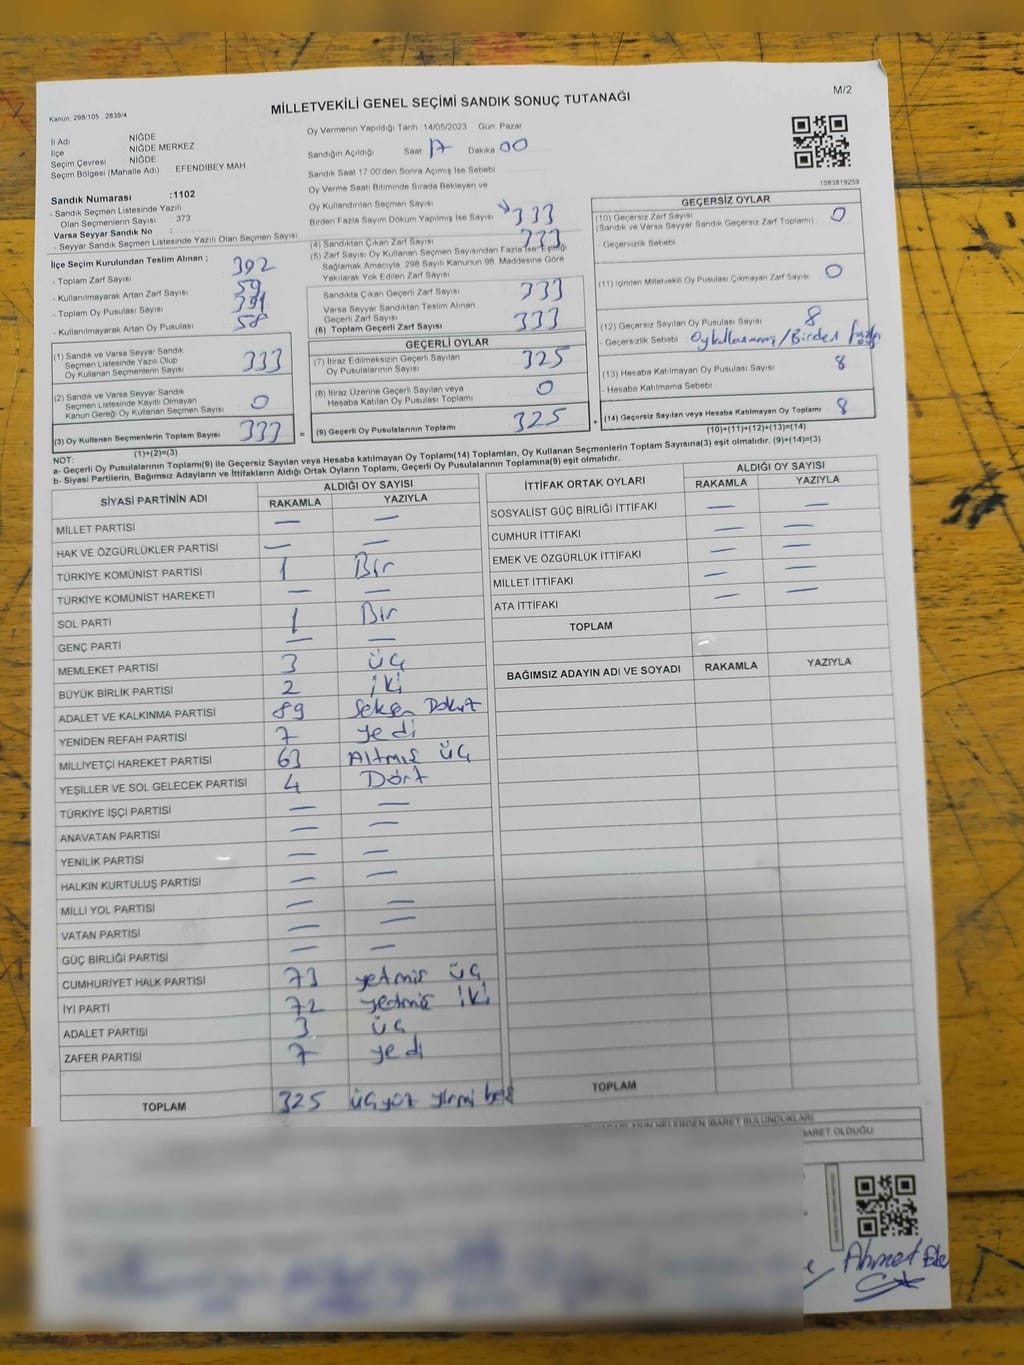 Kanun: 298/105 . 2839/4
MİLLETVEKİLİ GENEL SEÇİMİ SANDIK SONUÇ TUTANAĞI
M/2
İl Adı NİĞDE
İlçe NİĞDE MERKEZ
Seçim Çevresi NİĞDE
Seçim Bölgesi (Mahalle Adı) EFENDİBEY MAH.
Sandık Numarası :1102
- Sandık Seçmen Listesinde Yazılı
Olan Seçmenlerin Sayısı : 373
Varsa Seyyar Sandık No :
- Seyyar Sandık Seçmen Listesinde Yazılı Olan Seçmen Sayısı
İlçe Seçim Kurulundan Teslim Alınan ;
- Toplam Zarf Sayısı 392
- Kullanılmayarak Artan Zarf Sayısı 59
- Toplam Oy Pusulası Sayısı 391
- Kullanılmayarak Artan Oy Pusulası 58
(1) Sandık ve Varsa Seyyar Sandık
Seçmen Listesinde Yazılı Olup
Oy Kullanan Seçmenlerin Sayısı 333
(2) Sandık ve Varsa Seyyar Sandık
Seçmen Listesinde Kayıtlı Olmayan
Kanun Gereği Oy Kullanan Seçmen Sayısı 0
(3) Oy Kullanan Seçmenlerin Toplam Sayısı 333 =
(1)+(2)=(3)
Oy Vermenin Yapıldığı Tarih 14/05/2023 Gün: Pazar
Sandığın Açıldığı Saat 17 Dakika 00
Sandık Saat 17:00'den Sonra Açımış İse Sebebi
Oy Verme Saati Bitiminde Sırada Bekleyen ve
Oy Kullandırılan Seçmen Sayısı
Birden Fazla Sayım Döküm Yapılmış İse Sayısı
333
(4) Sandıktan Çıkan Zarf Sayısı 333
(5) Zarf Sayısı Oy Kullanan Seçmen Sayısından Fazla İse, Eşitliği
Sağlamak Amacıyla, 298 Sayılı Kanunun 98. Maddesine Göre
Yakılarak Yok Edilen Zarf Sayısı
Sandıkta Çıkan Geçerli Zarf Sayısı 333
Varsa Seyyar Sandıktan Teslim Alınan
Geçerli Zarf Sayısı
(6) Toplam Geçerli Zarf Sayısı 333
GEÇERLİ OYLAR
(7) İtiraz Edilmeksizin Geçerli Sayılan
Oy Pusulalarının Sayısı 325
(8) İtiraz Üzerine Geçerli Sayılan veya
Hesaba Katılan Oy Pusulası Toplamı 0
(9) Geçerli Oy Pusulalarının Toplamı 325 +
1083819259
GEÇERSİZ OYLAR
(10) Geçersiz Zarf Sayısı 0
(Sandık ve Varsa Seyyar Sandık Geçersiz Zarf Toplamı)
- Geçersizlik Sebebi
(11) İçinden Milletvekili Oy Pusulası Çıkmayan Zarf Sayısı 0
(12) Geçersiz Sayılan Oy Pusulası Sayısı 8
- Geçersizlik Sebebi /Birden fazla
(13) Hesaba Katılmayan Oy Pusulası Sayısı 8
- Hesaba Katılmama Sebebi
(14) Geçersiz Sayılan veya Hesaba Katılmayan Oy Toplamı 8
(10)+(11)+(12)+(13)=(14)
NOT:
a- Geçerli Oy Pusulalarının Toplamı(9) ile Geçersiz Sayılan veya Hesaba Katılmayan Oy Toplamı(14) Toplamları, Oy Kullanan Seçmenlerin Toplam Sayısına(3) eşit olmalıdır. (9)+(14)=(3)
b- Siyasi Partilerin, Bağımsız Adayların ve İttifakların Aldığı Ortak Oyların Toplamı, Geçerli Oy Pusulalarının Toplamına(9) eşit olmalıdır.
SİYASİ PARTİNİN ADI ALDIĞI OY SAYISI
RAKAMLA YAZIYLA
MİLLET PARTİSİ — —
HAK VE ÖZGÜRLÜKLER PARTİSİ — —
TÜRKİYE KOMÜNİST PARTİSİ 1 Bir
TÜRKİYE KOMÜNİST HAREKETİ — —
SOL PARTİ 1 Bir
GENÇ PARTİ — —
MEMLEKET PARTİSİ 3 üç
BÜYÜK BİRLİK PARTİSİ 2 iki
ADALET VE KALKINMA PARTİSİ 89 Seksen Dokuz
YENİDEN REFAH PARTİSİ 7 yedi
MİLLİYETÇİ HAREKET PARTİSİ 63 Altmış üç
YEŞİLLER VE SOL GELECEK PARTİSİ 4 Dört
TÜRKİYE İŞÇİ PARTİSİ — —
ANAVATAN PARTİSİ — —
YENİLİK PARTİSİ — —
HALKIN KURTULUŞ PARTİSİ — —
MİLLİ YOL PARTİSİ — —
VATAN PARTİSİ — —
GÜÇ BİRLİĞİ PARTİSİ — —
CUMHURİYET HALK PARTİSİ 73 yetmiş üç
İYİ PARTİ 72 yetmiş iki
ADALET PARTİSİ 3 üç
ZAFER PARTİSİ 7 yedi
TOPLAM 325 üçyüz yirmi beş
İTTİFAK ORTAK OYLARI ALDIĞI OY SAYISI
RAKAMLA YAZIYLA
SOSYALİST GÜÇ BİRLİĞİ İTTİFAKI — —
CUMHUR İTTİFAKI — —
EMEK VE ÖZGÜRLÜK İTTİFAKI — —
MİLLET İTTİFAKI — —
ATA İTTİFAKI — —
TOPLAM —
BAĞIMSIZ ADAYIN ADI VE SOYADI RAKAMLA YAZIYLA
TOPLAM
NELERDEN İBARET BULUNDUKLARI
İBARET OLDUĞU
Ahmet